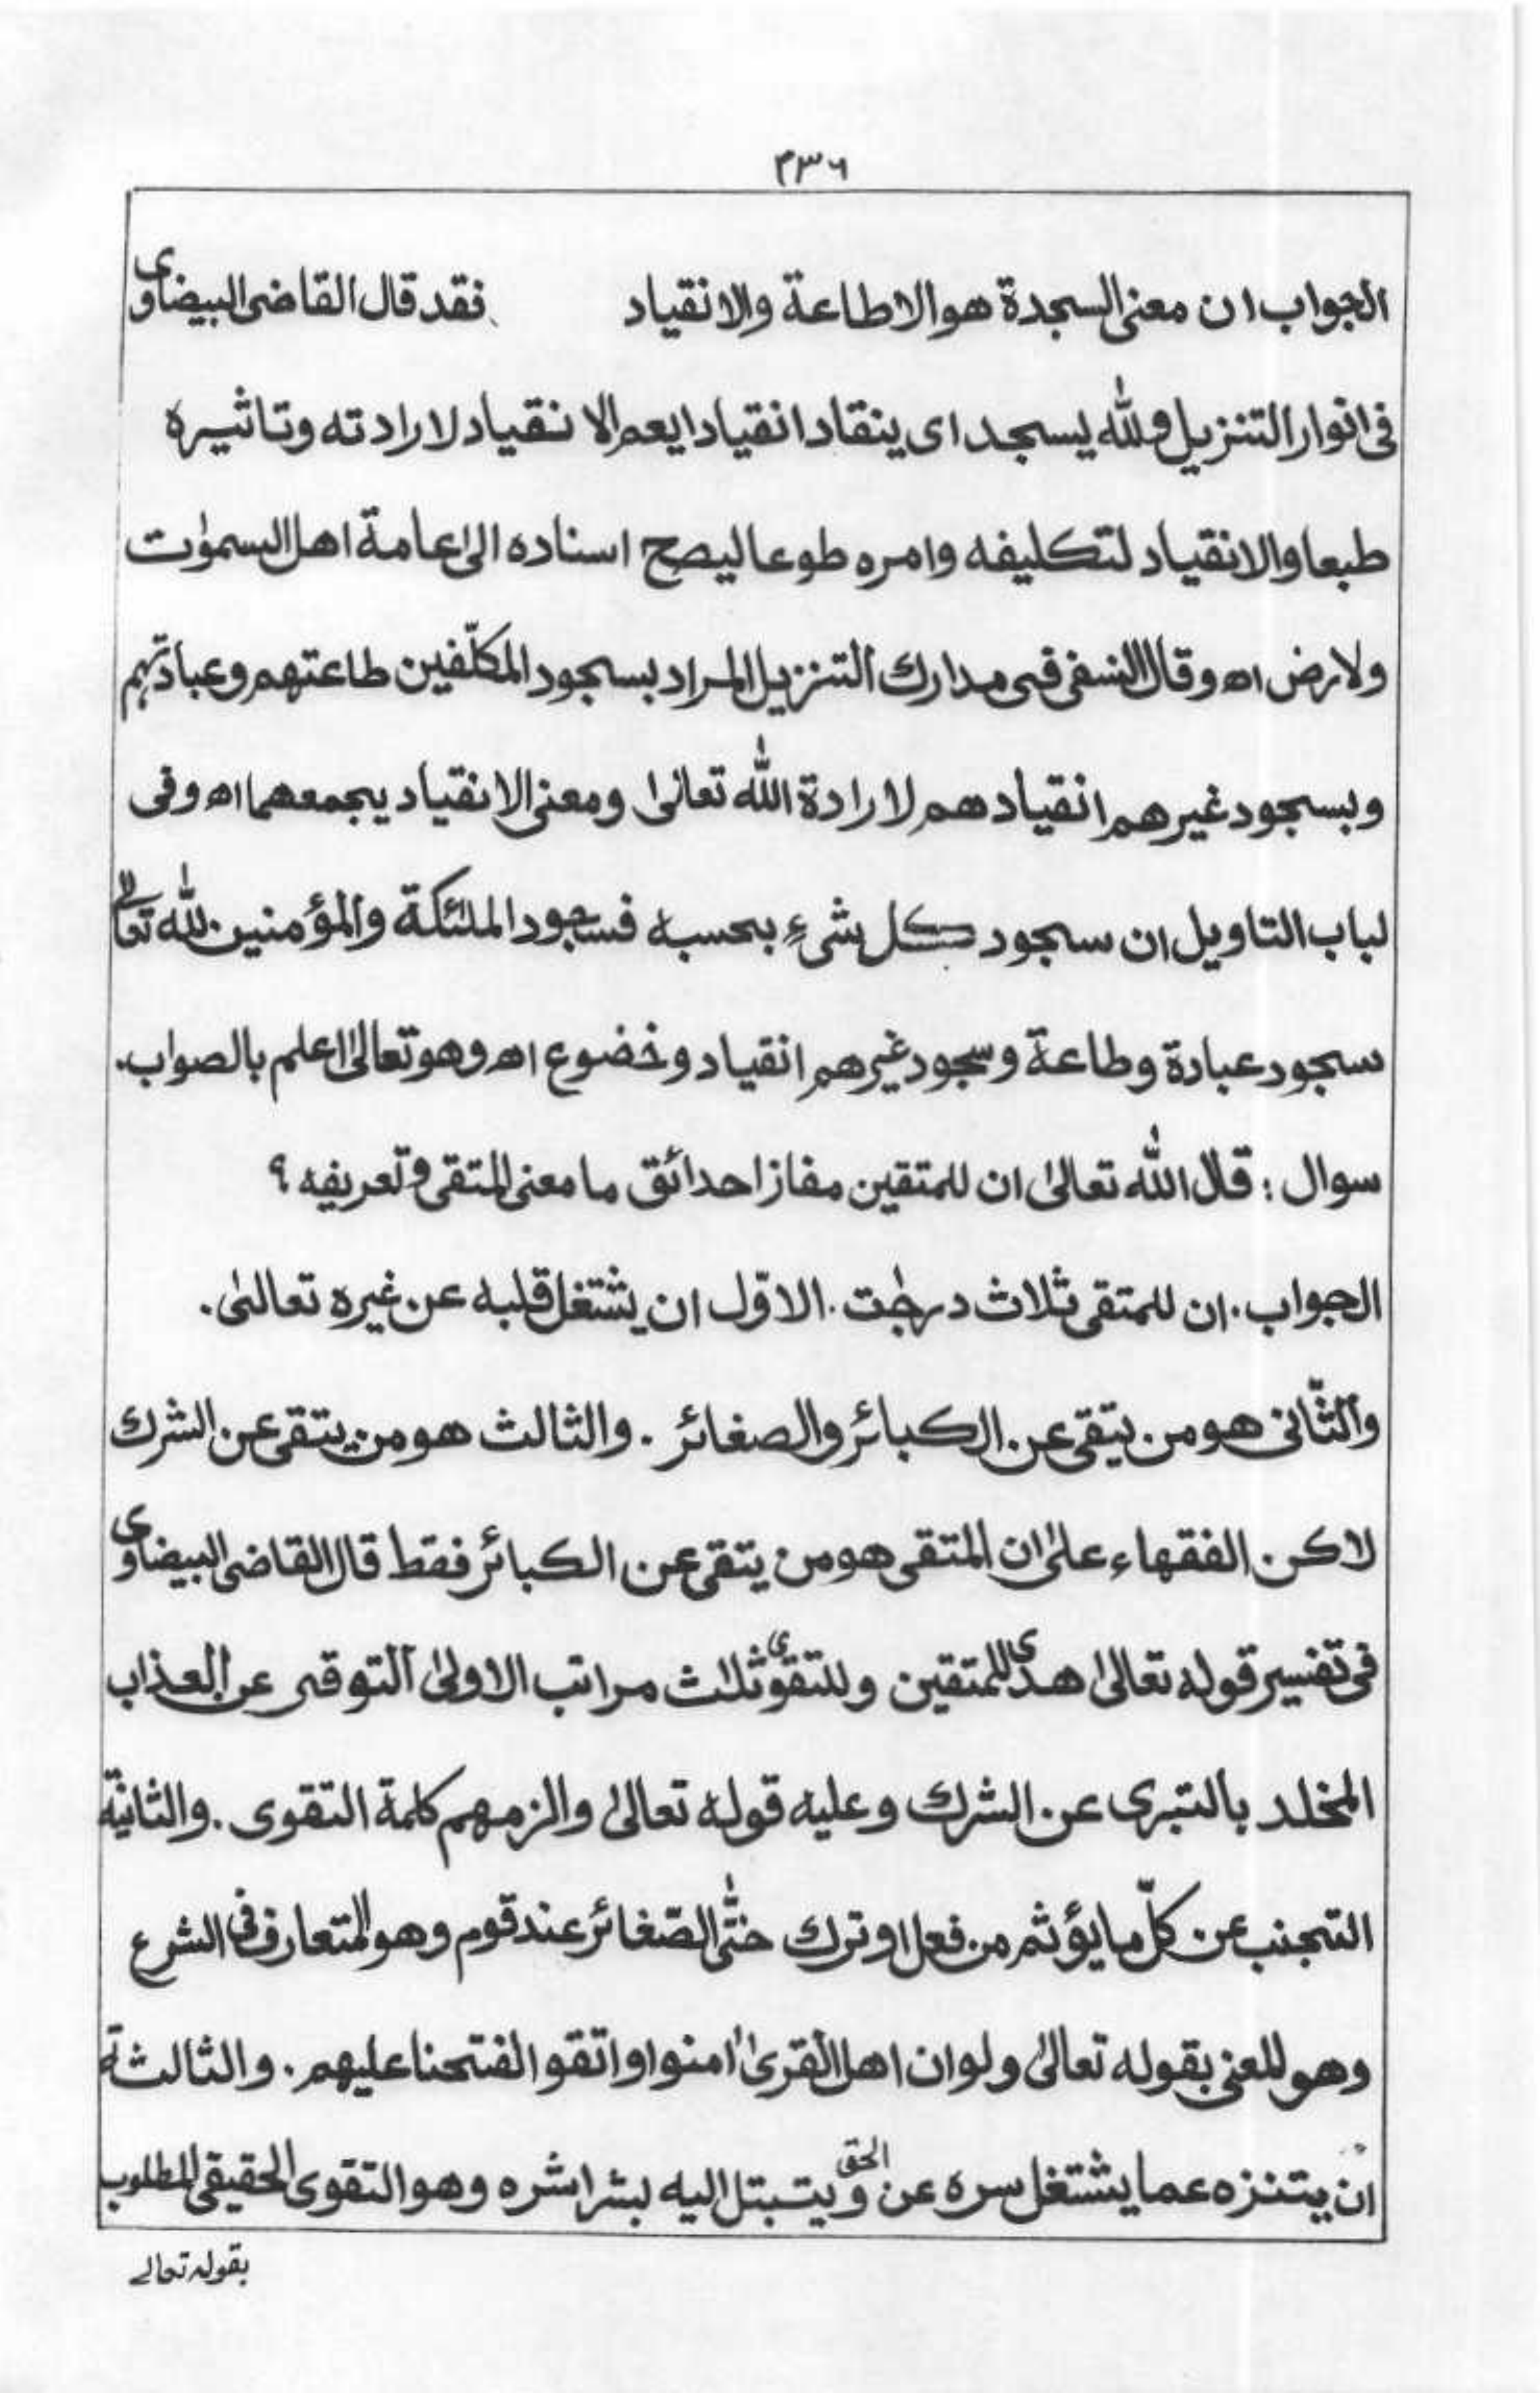 ٤٣٦
الجواب ان معنى السجدة هو الاطاعة والانقياد فقد قال القاضى البيضاوى
فى انوار التنزيل ولله يسجد اى ينقاد انقيادا يعم الانقياد لارادته وتاثيره
طبعا والانقياد لتكليفه وامره طوعا ليصح اسناده الى عامة اهل السمٰوٰت
ولارض اه وقال النسفى فى مدارك التنزيل المراد بسجود المكلّفين طاعتهم وعبادتهم
وبسجود غيرهم انقيادهم لارادة الله تعالىٰ ومعنى الانقياد يجمعهما اه وفى
لباب التاويل ان سجود كل شىءٍ بحسبه فسجود الملئكة والمؤمنين لله تعالىٰ
سجود عبادة وطاعة وسجود غيرهم انقياد وخضوع اه وهو تعالىٰ اعلم بالصواب.
سوال : قال الله تعالىٰ ان للمتقين مفازا حدائق ما معنى المتقى وتعريفه ؟
الجواب. ان للمتقى ثلاث درجٰت. الاوّل ان يشتغل قلبه عن غيره تعالىٰ.
والثّانى هو من يتقى عن الكبائر والصغائر. والثالث هو من يتقى عن الشرك
لاكن الفقهاء علىٰ ان المتقى هو من يتقى عن الكبائر فقط قال القاضى البيضاوى
فى تفسير قوله تعالىٰ هدى للمتقين وللتقوى ثلٰث مراتب الاولىٰ التوقى عن العذاب
المخلد بالتبرى عن الشرك وعليه قوله تعالىٰ والزمهم كلمة التقوى. والثانية
التجنب عن كلّ ما يؤثم من فعل او ترك حتّٰى الصّغائر عند قوم وهو المتعارف فى الشرع
وهو المعنى بقوله تعالىٰ ولو ان اهل القرىٰ اٰمنوا واتقوا لفتحنا عليهم. والثالثة
ان يتنزه عما يشتغل سره عن الحق ويتبتل اليه بشراشره وهو التقوى الحقيقى المطلوب
بقوله تعالے